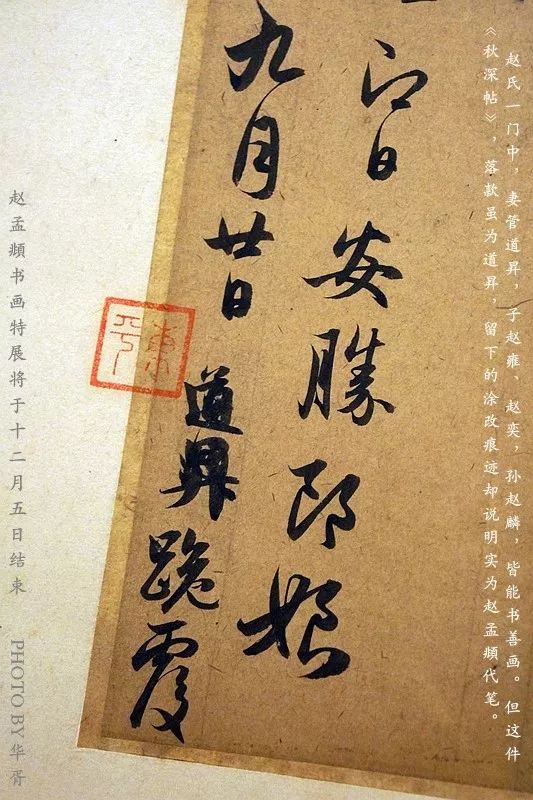 赵氏一门中，妻管道昇，子赵雍、赵奕，孙赵麟，皆能书善画。但这件
《秋深帖》，落款虽为道昇，留下的涂改痕迹却说明实为赵孟頫代笔。
日安胜郎娘
九月廿日
道昇跪覆
赵孟頫书画特展将于十二月五日结束 PHOTO BY 华胥